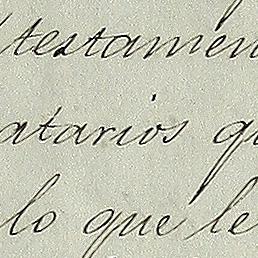 testamen
atarios qu
lo que le